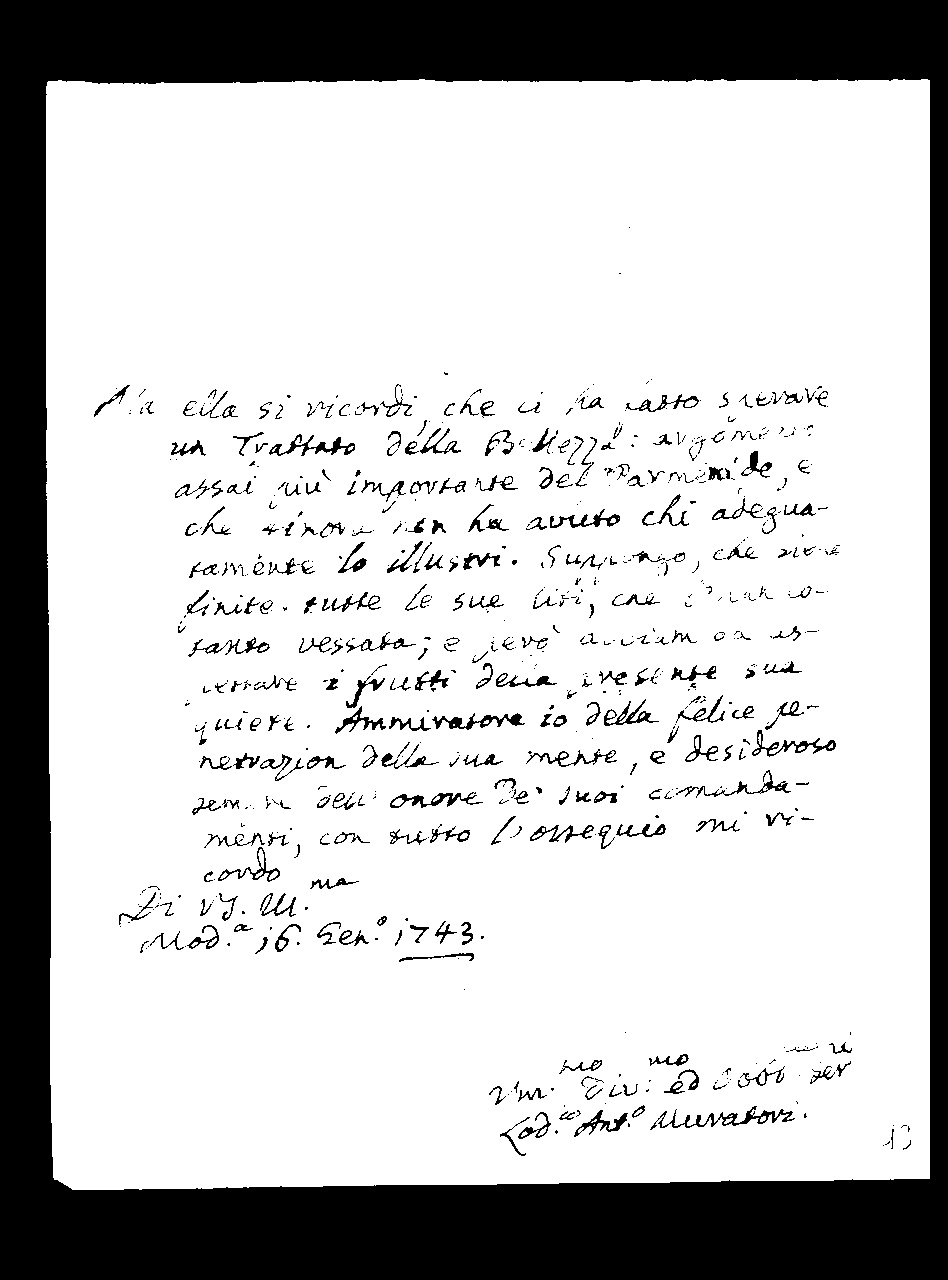 Ma ella si ricordi, che ci ha fatto sperare
un Trattato della Bellezza: argomento
assai più importante del Parmenide, e
che finora non ha avuto chi adegua-
tamente lo illustri. Suppongo, che siene
finite tutte le sue liti, che l'han co-
tanto vessata; e però abbiam da as-
pettare i frutti della presente sua
quiete. Ammiratore io della felice pe-
netrazion della sua mente, e desideroso
sempre dell' onore de' suoi comanda-
menti, con tutto l'ossequio mi ri-
cordo
Di VS. Ill.ma
Mod.a 16. Gen.o 1743.
Um.mo Div.mo ed Obb. Ser.re
Lod.co Ant.o Muratori.
13